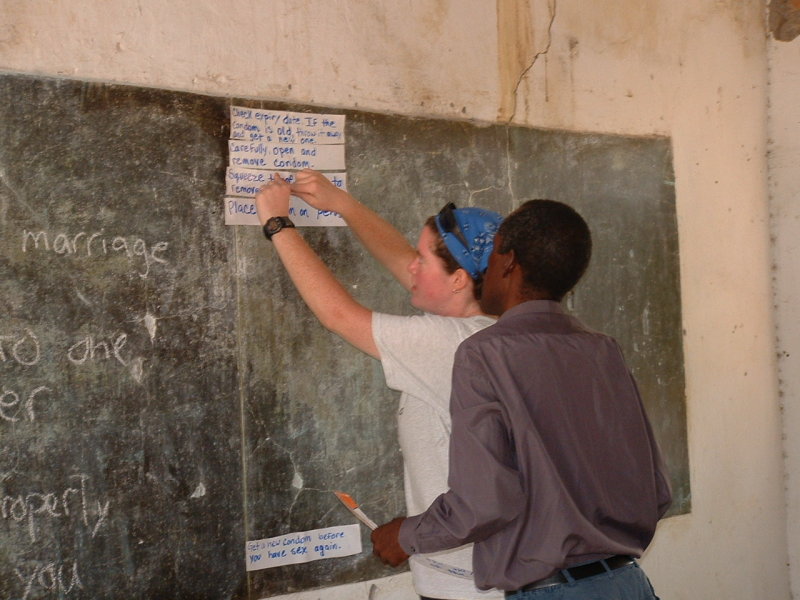 Check expiry date. If the
condom is old, throw it away
and get a new one.
Carefully open and
remove condom.
Squeeze to
remove
Place on penis
marriage
to one
er
roperty
you
Get a new condom before
you have sex again.